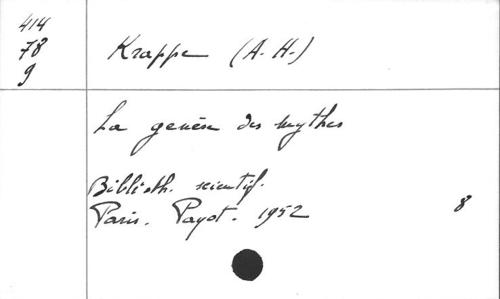 414
78
9
Krappe (A. H.)
La genèse des mythes
Biblioth. scientif.
Paris. Payot. 1952
8